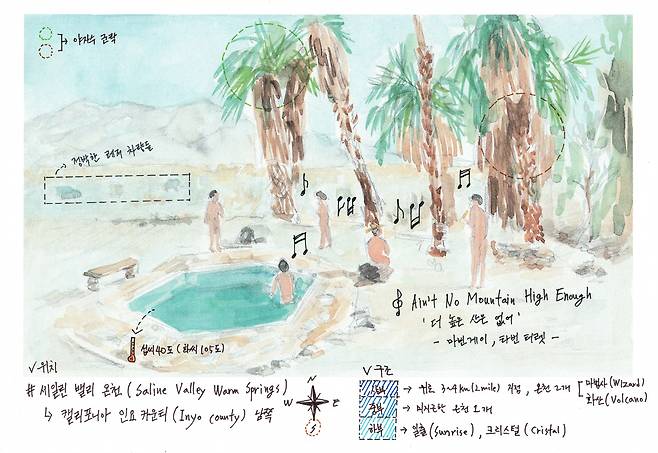 야자수 군락
정박한 레저 차량들
Ain't No Mountain High Enough
'더 높은 산은 없어'
- 마빈게이, 타미 터렐 -
섭씨 40도 (화씨 105도)
V 위치
# 세일린 밸리 온천 (Saline Valley Warm Springs)
↳ 캘리포니아 인요 카운티 (Inyo county) 남쪽
W E
S
V 구조
→ 위로 3~4km(2mile) 지점, 온천 2개
마법사(Wizard)
화산(Volcano)
중부 → 온천 1개
하부 → 일출(Sunrise), 크리스털(Cristal)